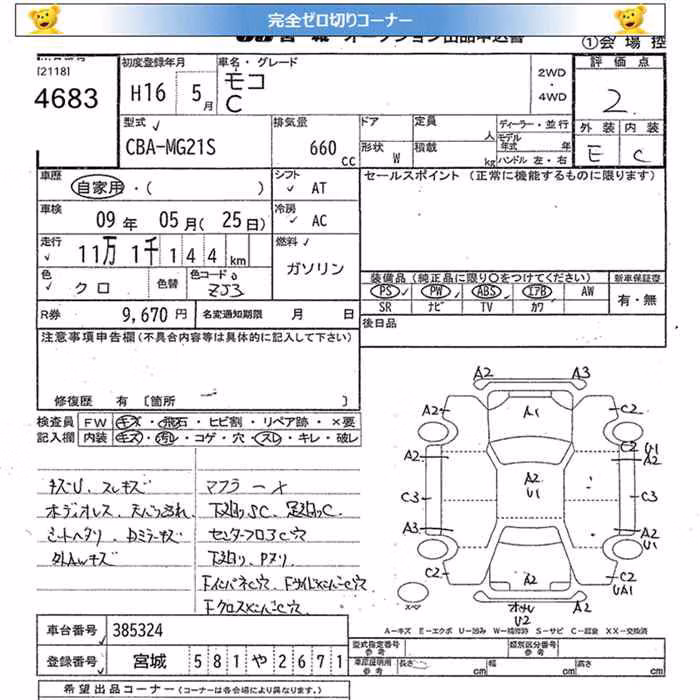 完全ゼロ切りコーナー
①会場控
[2118]
4683
初度登録年月
H16 5月
車名・グレード
モコ
C
2WD
・
4WD
評価点
2
外装 内装
E C
型式
CBA-MG21S
排気量
660 cc
ドア
形状 W
定員 人
積載 kg
ディーラー・並行
モデル年式 年式
ハンドル 左・右
車歴
自家用・( )
シフト
AT
セールスポイント (正常に機能するものに限ります)
車検
09年 05月(25日)
冷房
AC
走行
11万 1千 144 km
燃料
ガソリン
色
クロ
色替
色コード
ZJ3
装備品 (純正品に限り○をつけてください)
新車保証書
PS PW ABS エアB AW
SR ナビ TV カワ
有・無
R券
9,670円
名変通知期限 月 日
後日品
注意事項申告欄(不具合内容等は具体的に記入して下さい)
修復歴 有 [箇所 ]
検査員記入欄
FW キズ・飛石・ヒビ割・リペア跡・×要
内装 キズ・汚レ・コゲ・穴・スレ・キレ・破レ
キズU、スレキズ
マフラー×
下廻りSC、足廻りC
シートヘタリ、Dミラーキズ
センターフロアC穴
外Awキズ
A2 A3
A2 A1 C2
A2 U1 A2
C3 A2 U1 C3
A3 A2 U1
C2 A2 C2 UA1
スペア
U2 A2
A-キズ E-エクボ U-凹み W-補修跡 S-サビ C-腐食 XX-交換済
車台番号
385324
登録番号
宮城 581 や 2671
型式指定番号 参考
類別区分番号 参考
車庫証明用 参考
長さ cm 幅 cm 高さ cm
希望出品コーナー (コーナーは各会場により異なります。)